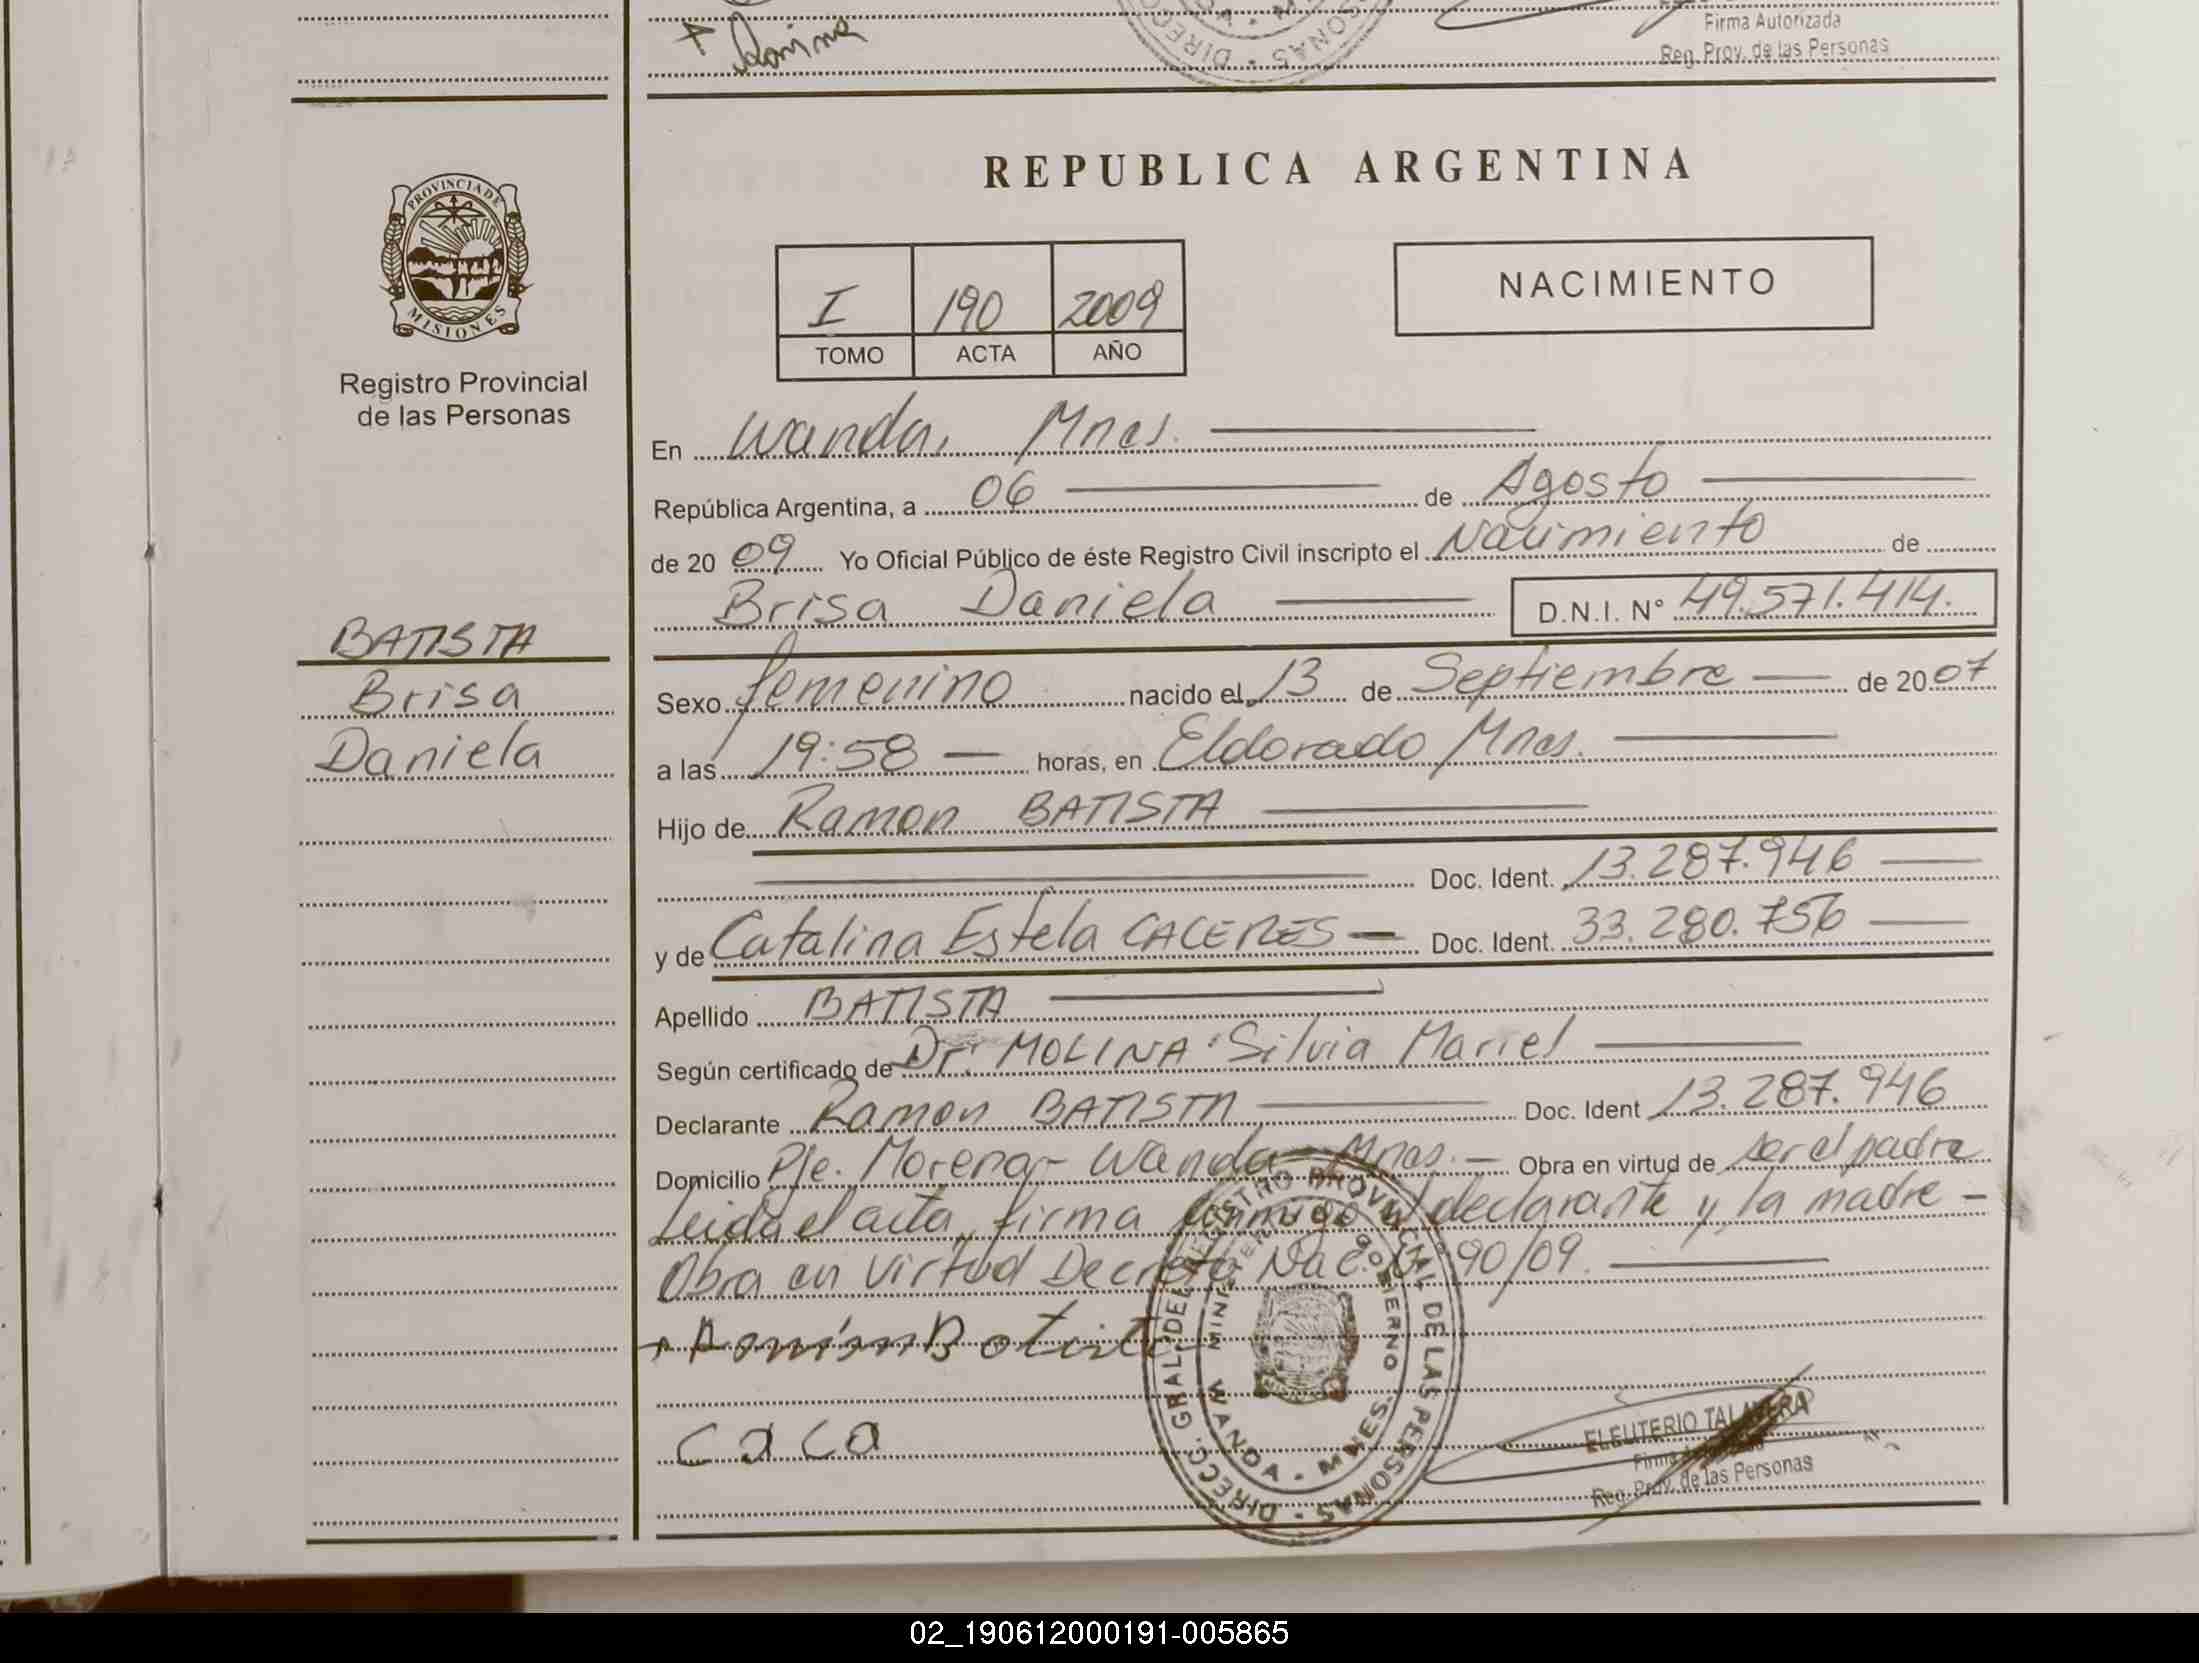 Firma Autorizada
Reg. Prov. de las Personas
PROVINCIA DE
MISIONES
Registro Provincial
de las Personas
BATISTA
Brisa
Daniela
REPUBLICA ARGENTINA
I 190 2009
TOMO ACTA AÑO
NACIMIENTO
En Wanda, Mnes.
República Argentina, a 06 de Agosto
de 2009 Yo Oficial Público de éste Registro Civil inscripto el Nacimiento de
Brisa Daniela D.N.I. N° 49.571.414.
Sexo femenino nacido el 13 de Septiembre de 2007
a las 19:58 horas, en Eldorado Mnes.
Hijo de Ramon BATISTA
Doc. Ident. 13.287.946
y de Catalina Estela CACERES Doc. Ident. 33.280.756
Apellido BATISTA
Según certificado de Dr. MOLINA Silvia Mariel
Declarante Ramon BATISTA Doc. Ident 13.287.946
Domicilio Pje. Moreno - Wanda - Mnes. - Obra en virtud de ser el padre
Leida el acta, firma conmigo el declarante y la madre -
Obra en virtud Decreto Nac. 90/09.
caca
DIRECC. GRAL. DEL REGISTRO PROVINCIAL DE LAS PERSONAS
GOBIERNO
WANDA - MNES.
ELEUTERIO TALAVERA
Reg. Prov. de las Personas
02_190612000191-005865